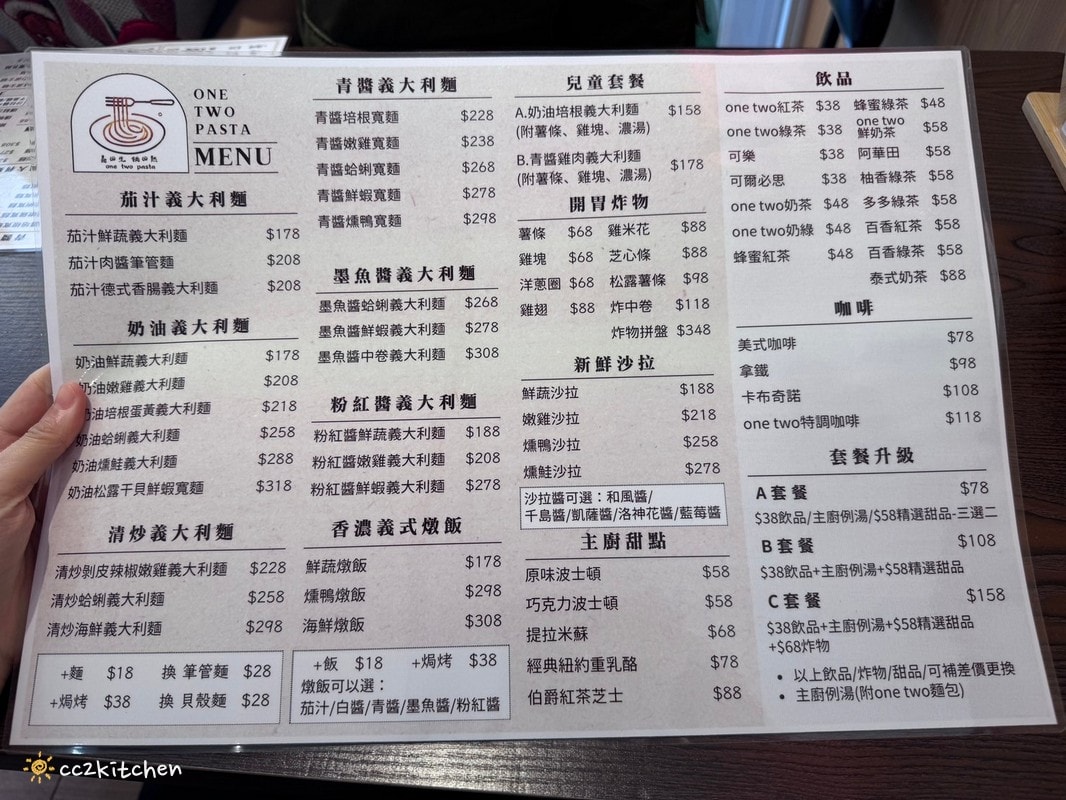 ONE
TWO
PASTA
MENU
one two pasta
茄汁義大利麵
茄汁鮮蔬義大利麵 $178
茄汁肉醬筆管麵 $208
茄汁德式香腸義大利麵 $208
奶油義大利麵
奶油鮮蔬義大利麵 $178
奶油嫩雞義大利麵 $208
奶油培根蛋黃義大利麵 $218
奶油蛤蜊義大利麵 $258
奶油燻鮭義大利麵 $288
奶油松露干貝鮮蝦寬麵 $318
清炒義大利麵
清炒剝皮辣椒嫩雞義大利麵 $228
清炒蛤蜊義大利麵 $258
清炒海鮮義大利麵 $298
+麵 $18 換 筆管麵 $28
+焗烤 $38 換 貝殼麵 $28
青醬義大利麵
青醬培根寬麵 $228
青醬嫩雞寬麵 $238
青醬蛤蜊寬麵 $268
青醬鮮蝦寬麵 $278
青醬燻鴨寬麵 $298
墨魚醬義大利麵
墨魚醬蛤蜊義大利麵 $268
墨魚醬鮮蝦義大利麵 $278
墨魚醬中卷義大利麵 $308
粉紅醬義大利麵
粉紅醬鮮蔬義大利麵 $188
粉紅醬嫩雞義大利麵 $208
粉紅醬鮮蝦義大利麵 $278
香濃義式燉飯
鮮蔬燉飯 $178
燻鴨燉飯 $298
海鮮燉飯 $308
+飯 $18 +焗烤 $38
燉飯可以選：
茄汁/白醬/青醬/墨魚醬/粉紅醬
兒童套餐
A.奶油培根義大利麵 $158
(附薯條、雞塊、濃湯)
B.青醬雞肉義大利麵 $178
(附薯條、雞塊、濃湯)
開胃炸物
薯條 $68 雞米花 $88
雞塊 $68 芝心條 $88
洋蔥圈 $68 松露薯條 $98
雞翅 $88 炸中卷 $118
炸物拼盤 $348
新鮮沙拉
鮮蔬沙拉 $188
嫩雞沙拉 $218
燻鴨沙拉 $258
燻鮭沙拉 $278
沙拉醬可選：和風醬/
千島醬/凱薩醬/洛神花醬/藍莓醬
主廚甜點
原味波士頓 $58
巧克力波士頓 $58
提拉米蘇 $68
經典紐約重乳酪 $78
伯爵紅茶芝士 $88
飲品
one two紅茶 $38 蜂蜜綠茶 $48
one two綠茶 $38 one two鮮奶茶 $58
可樂 $38 阿華田 $58
可爾必思 $38 柚香綠茶 $58
one two奶茶 $48 多多綠茶 $58
one two奶綠 $48 百香紅茶 $58
蜂蜜紅茶 $48 百香綠茶 $58
泰式奶茶 $88
咖啡
美式咖啡 $78
拿鐵 $98
卡布奇諾 $108
one two特調咖啡 $118
套餐升級
A 套餐 $78
$38飲品/主廚例湯/$58精選甜品-三選二
B 套餐 $108
$38飲品+主廚例湯+$58精選甜品
C 套餐 $158
$38飲品+主廚例湯+$58精選甜品
+$68炸物
• 以上飲品/炸物/甜品/可補差價更換
• 主廚例湯(附one two麵包)
cc2kitchen